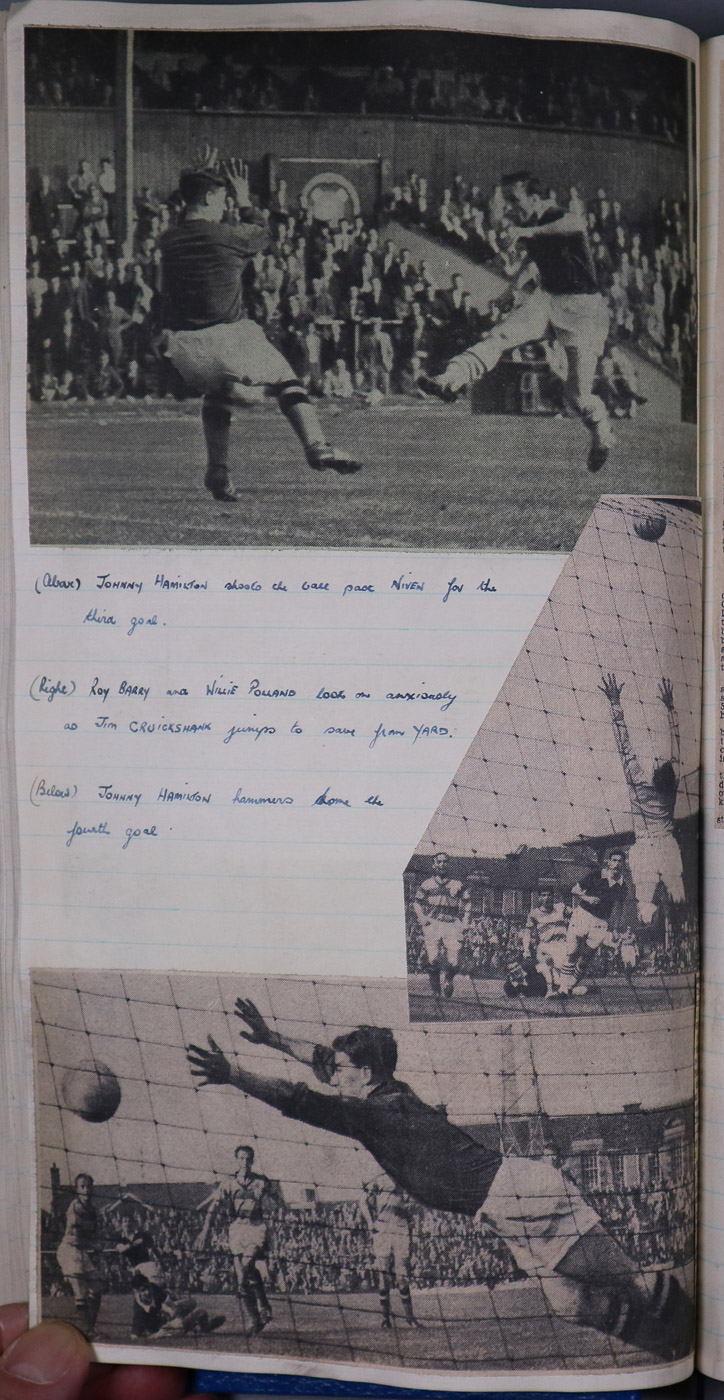 (Above) JOHNNY HAMILTON shoots the ball past NIVEN for the
third goal.
(Right) ROY BARRY and WILLIE POLLAND look on anxiously
as JIM CRUICKSHANK jumps to save from YARD.
(Below) JOHNNY HAMILTON hammers home the
fourth goal.